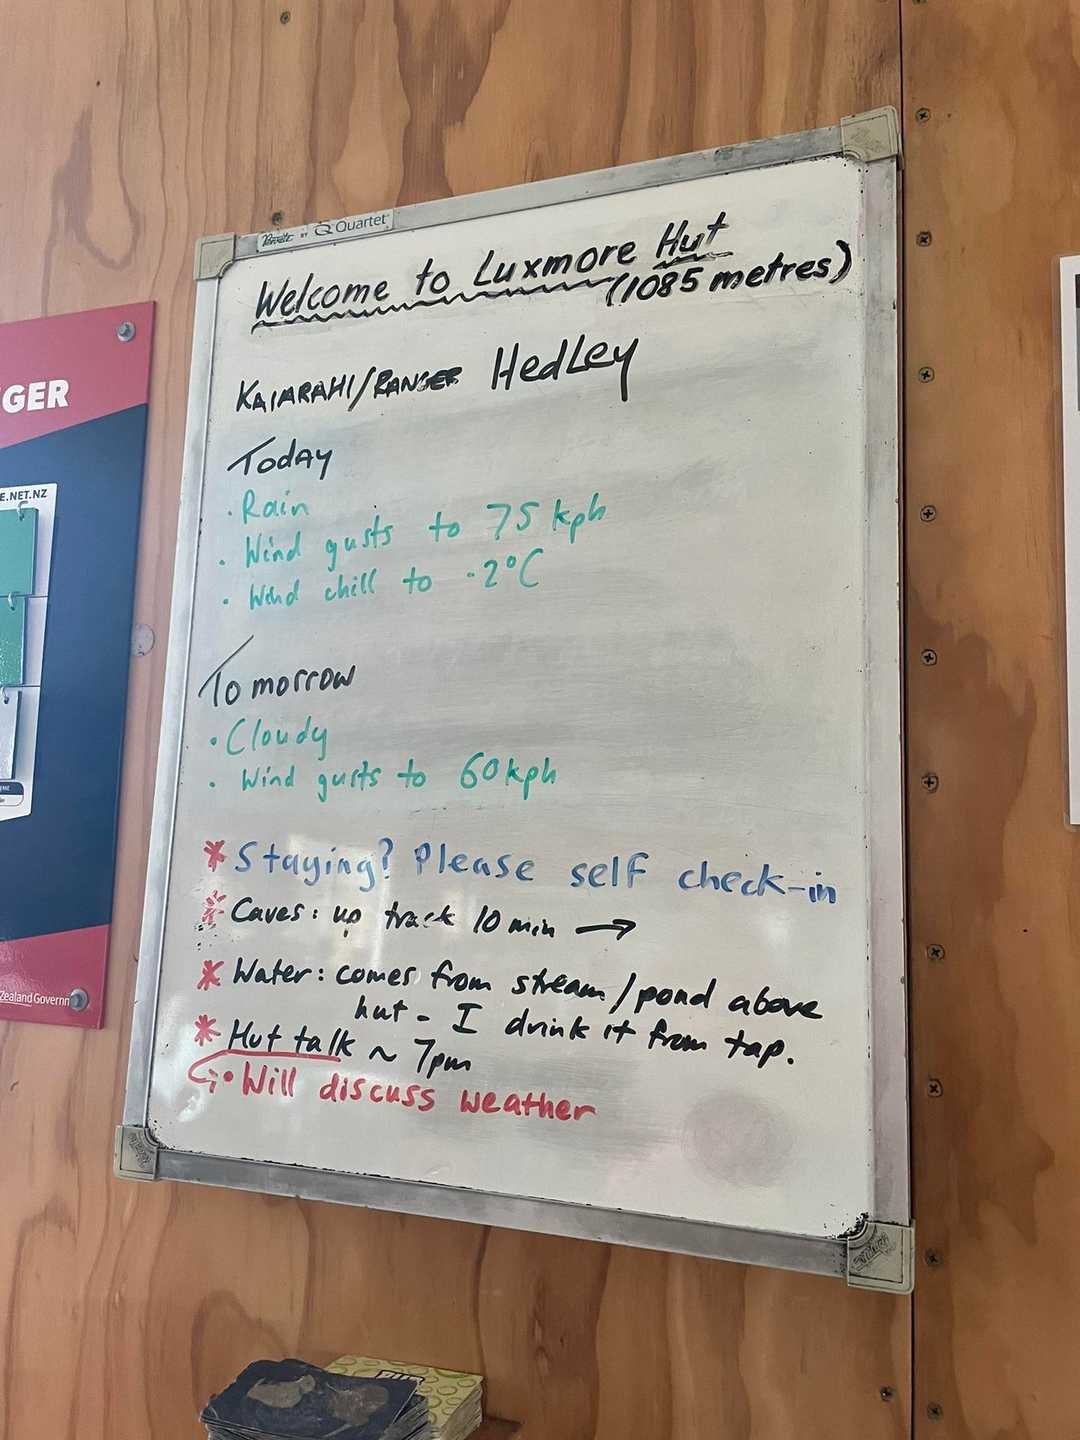 Quartet
Welcome to Luxmore Hut
(1085 metres)
KAIARAHI/RANGER HedLey
Today
· Rain
· Wind gusts to 75 kph
· Wind chill to -2°C
Tomorrow
· Cloudy
· Wind gusts to 60kph
* Staying? Please self check-in
* Caves: up track 10 min →
* Water: comes from stream/pond above
hut - I drink it from tap.
* Hut talk ~ 7pm
· Will discuss weather
GER
E.NET.NZ
Zealand Governm